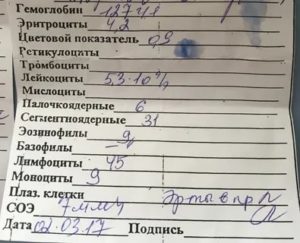 Гемоглобин 127 г/л
Эритроциты 4,2
Цветовой показатель 0,9
Ретикулоциты
Тромбоциты
Лейкоциты 5,3·10⁹/л
Мислоциты
Палочкоядерные 6
Сегментноядерные 31
Эозинофилы 9
Базофилы –
Лимфоциты 45
Моноциты 9
Плаз. клетки
СОЭ 7 мм/ч
Дата 02.03.17 Подпись